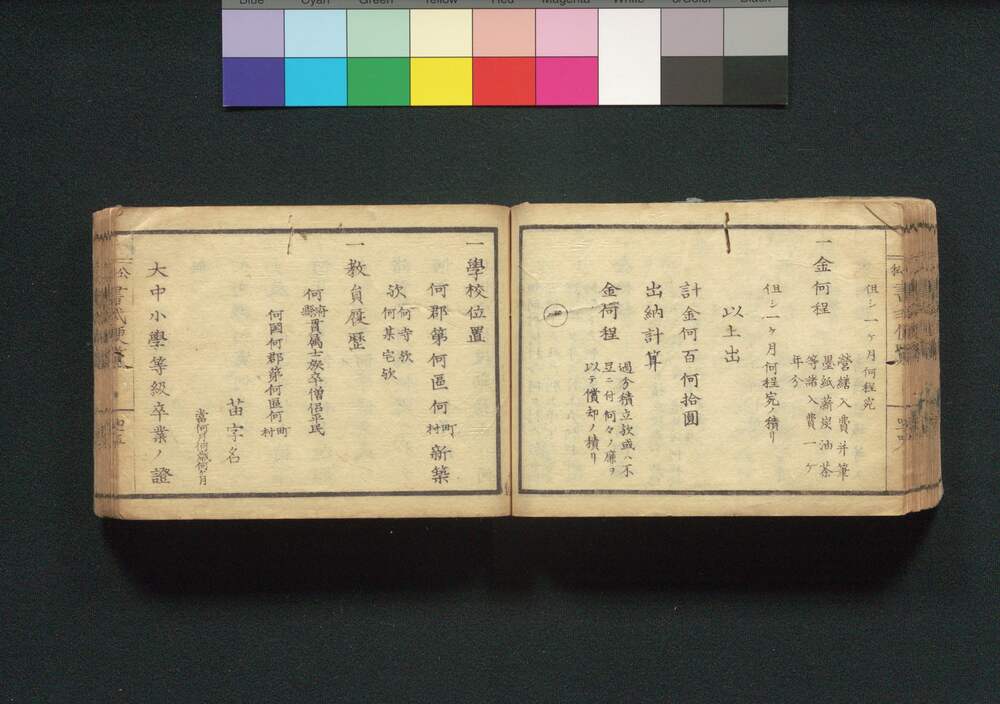 Blue Cyan Green Yellow Red Magenta White 3/Color Black
但シ一ヶ月何程宛
一金何程
營繕入費并筆
墨紙薪炭油茶
等諸入費一ヶ
年分
但シ一ヶ月何程宛ノ積リ
以上出
計金何百何拾圓
出納計算
金何程
過分積立欤或ハ不
足ニ付何々ノ廉ヲ
以テ償却ノ積リ
一學校位置
何郡第何區何町村新築
欤何寺欤
何某宅欤
一教員履歴
何府縣貫屬士族卒僧侶平民
何國何郡第何區何町村
苗字名
當何月何歳何ヶ月
大中小學等級卒業ノ證